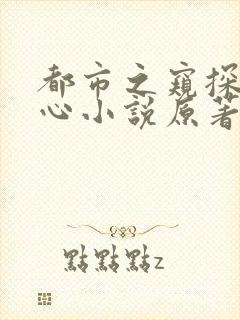 都市之窺探
心小說原著
點點點z